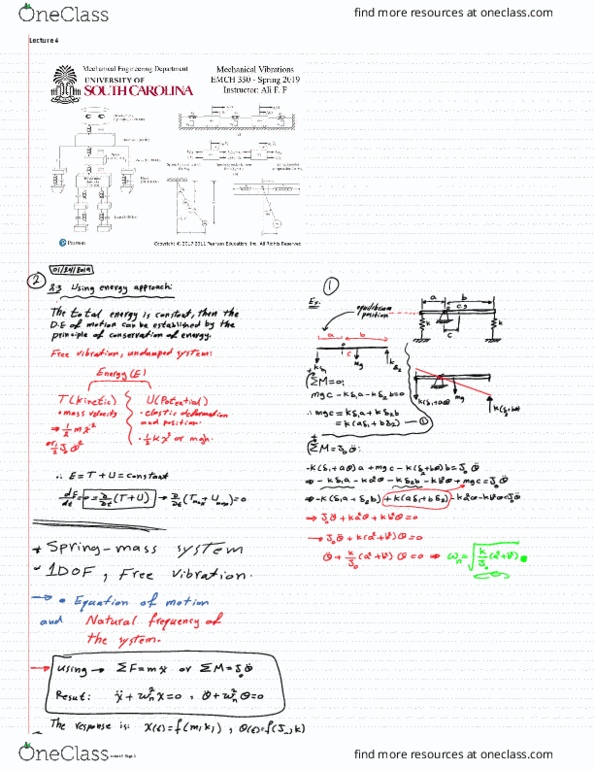 OneClass
find more resources at oneclass.com
Lecture 4
Mechanical Engineering Department
UNIVERSITY OF
SOUTH CAROLINA
Mechanical Vibrations
EMCH 330 - Spring 2019
Instructor: Ali F. F
Pearson
Copyright © 2017 2011 Pearson Education, Inc. All Rights Reserved
01/24/2019
②
2.3 Using energy approach:
The total energy is constant, then the
D.E of motion can be established by the
principle of conservation of energy.
Free vibration, undamped system:
Energy (E)
T (kinetic)
• mass velocity
⇒ ½ m ẋ²
or ½ J₀ θ̇²
U (Potential)
• elastic deformation
and position.
• ½ k x² or mgh.
∴ E = T + U = constant
dE/dt = 0 = ∂/∂t (T+U) → ∂/∂t (Tmax + Umax) = 0
+ Spring-mass system
1DOF, Free vibration.
→ • Equation of motion
and Natural frequency of
the system.
→ Using → ΣF = mẍ or ΣM = J₀ θ̈
Resut: ẍ + ωn² x = 0 , θ̈ + ωn² θ = 0
The response is: x(t) = f(m, k) , θ(t) = f(J₀, k)
①
Ex.
equilibrium
position
a
b
c.g
k
k
c
a
b
c
mg
kδ₂
ΣM = 0;
mgc - kδ₁a - kδ₂b = 0
∴ mgc = kδ₁a + kδ₂b
= k(aδ₁ + bδ₂) — ①
k(δ₁+aθ)
mg
k(δ₂+bθ)
ΣM = J₀ θ̈
-k(δ₁+aθ)a + mgc - k(δ₂+bθ)b = J₀ θ̈
⇒ -kδ₁a - ka²θ - kδ₂b - kb²θ + mgc = J₀ θ̈
⇒ -k(δ₁a + δ₂b) + k(aδ₁ + bδ₂) - ka²θ - kb²θ = J₀ θ̈
⇒ J₀ θ̈ + ka²θ + kb²θ = 0
→ J₀ θ̈ + k(a²+b²) θ = 0
θ̈ + k/J₀ (a²+b²) θ = 0 ⇒ ωn = √(k/J₀ (a²+b²))
OneClass
find more resources at oneclass.com